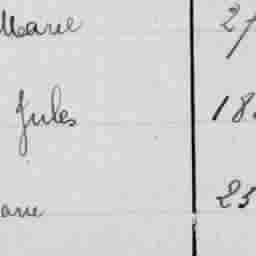 Marie 27
Jules 18
arie 25